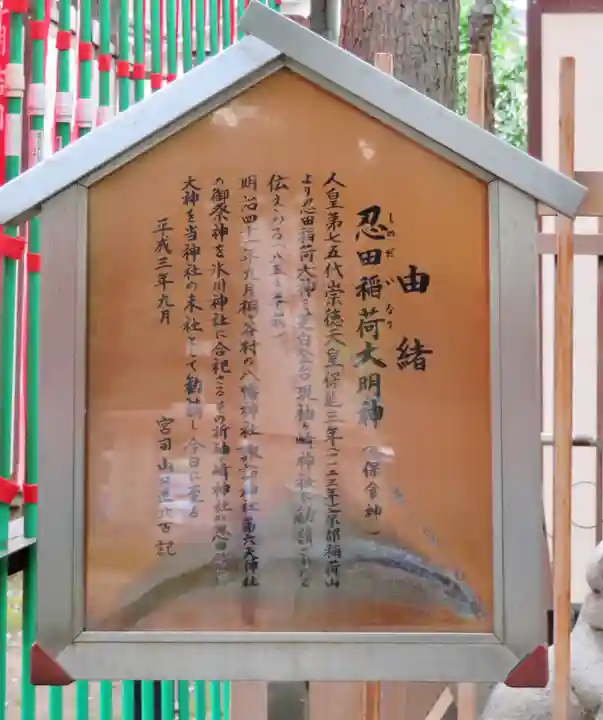 由緒
忍田稲荷大明神(保食神)
しのだ いなり
人皇第七五代崇徳天皇保延三年(一一三三年)京都稲荷山
より忍田稲荷大神を芝白金台現袖ヶ崎神社に勧請されたと
伝えられる
明治四十一年九月桐谷村の八幡神社諏訪神社第六天神社
の御祭神を氷川神社に合祀さるその折袖ヶ崎神社の忍田
大神を当神社の末社として勧請し今日に至る
平成三年九月
宮司山 記